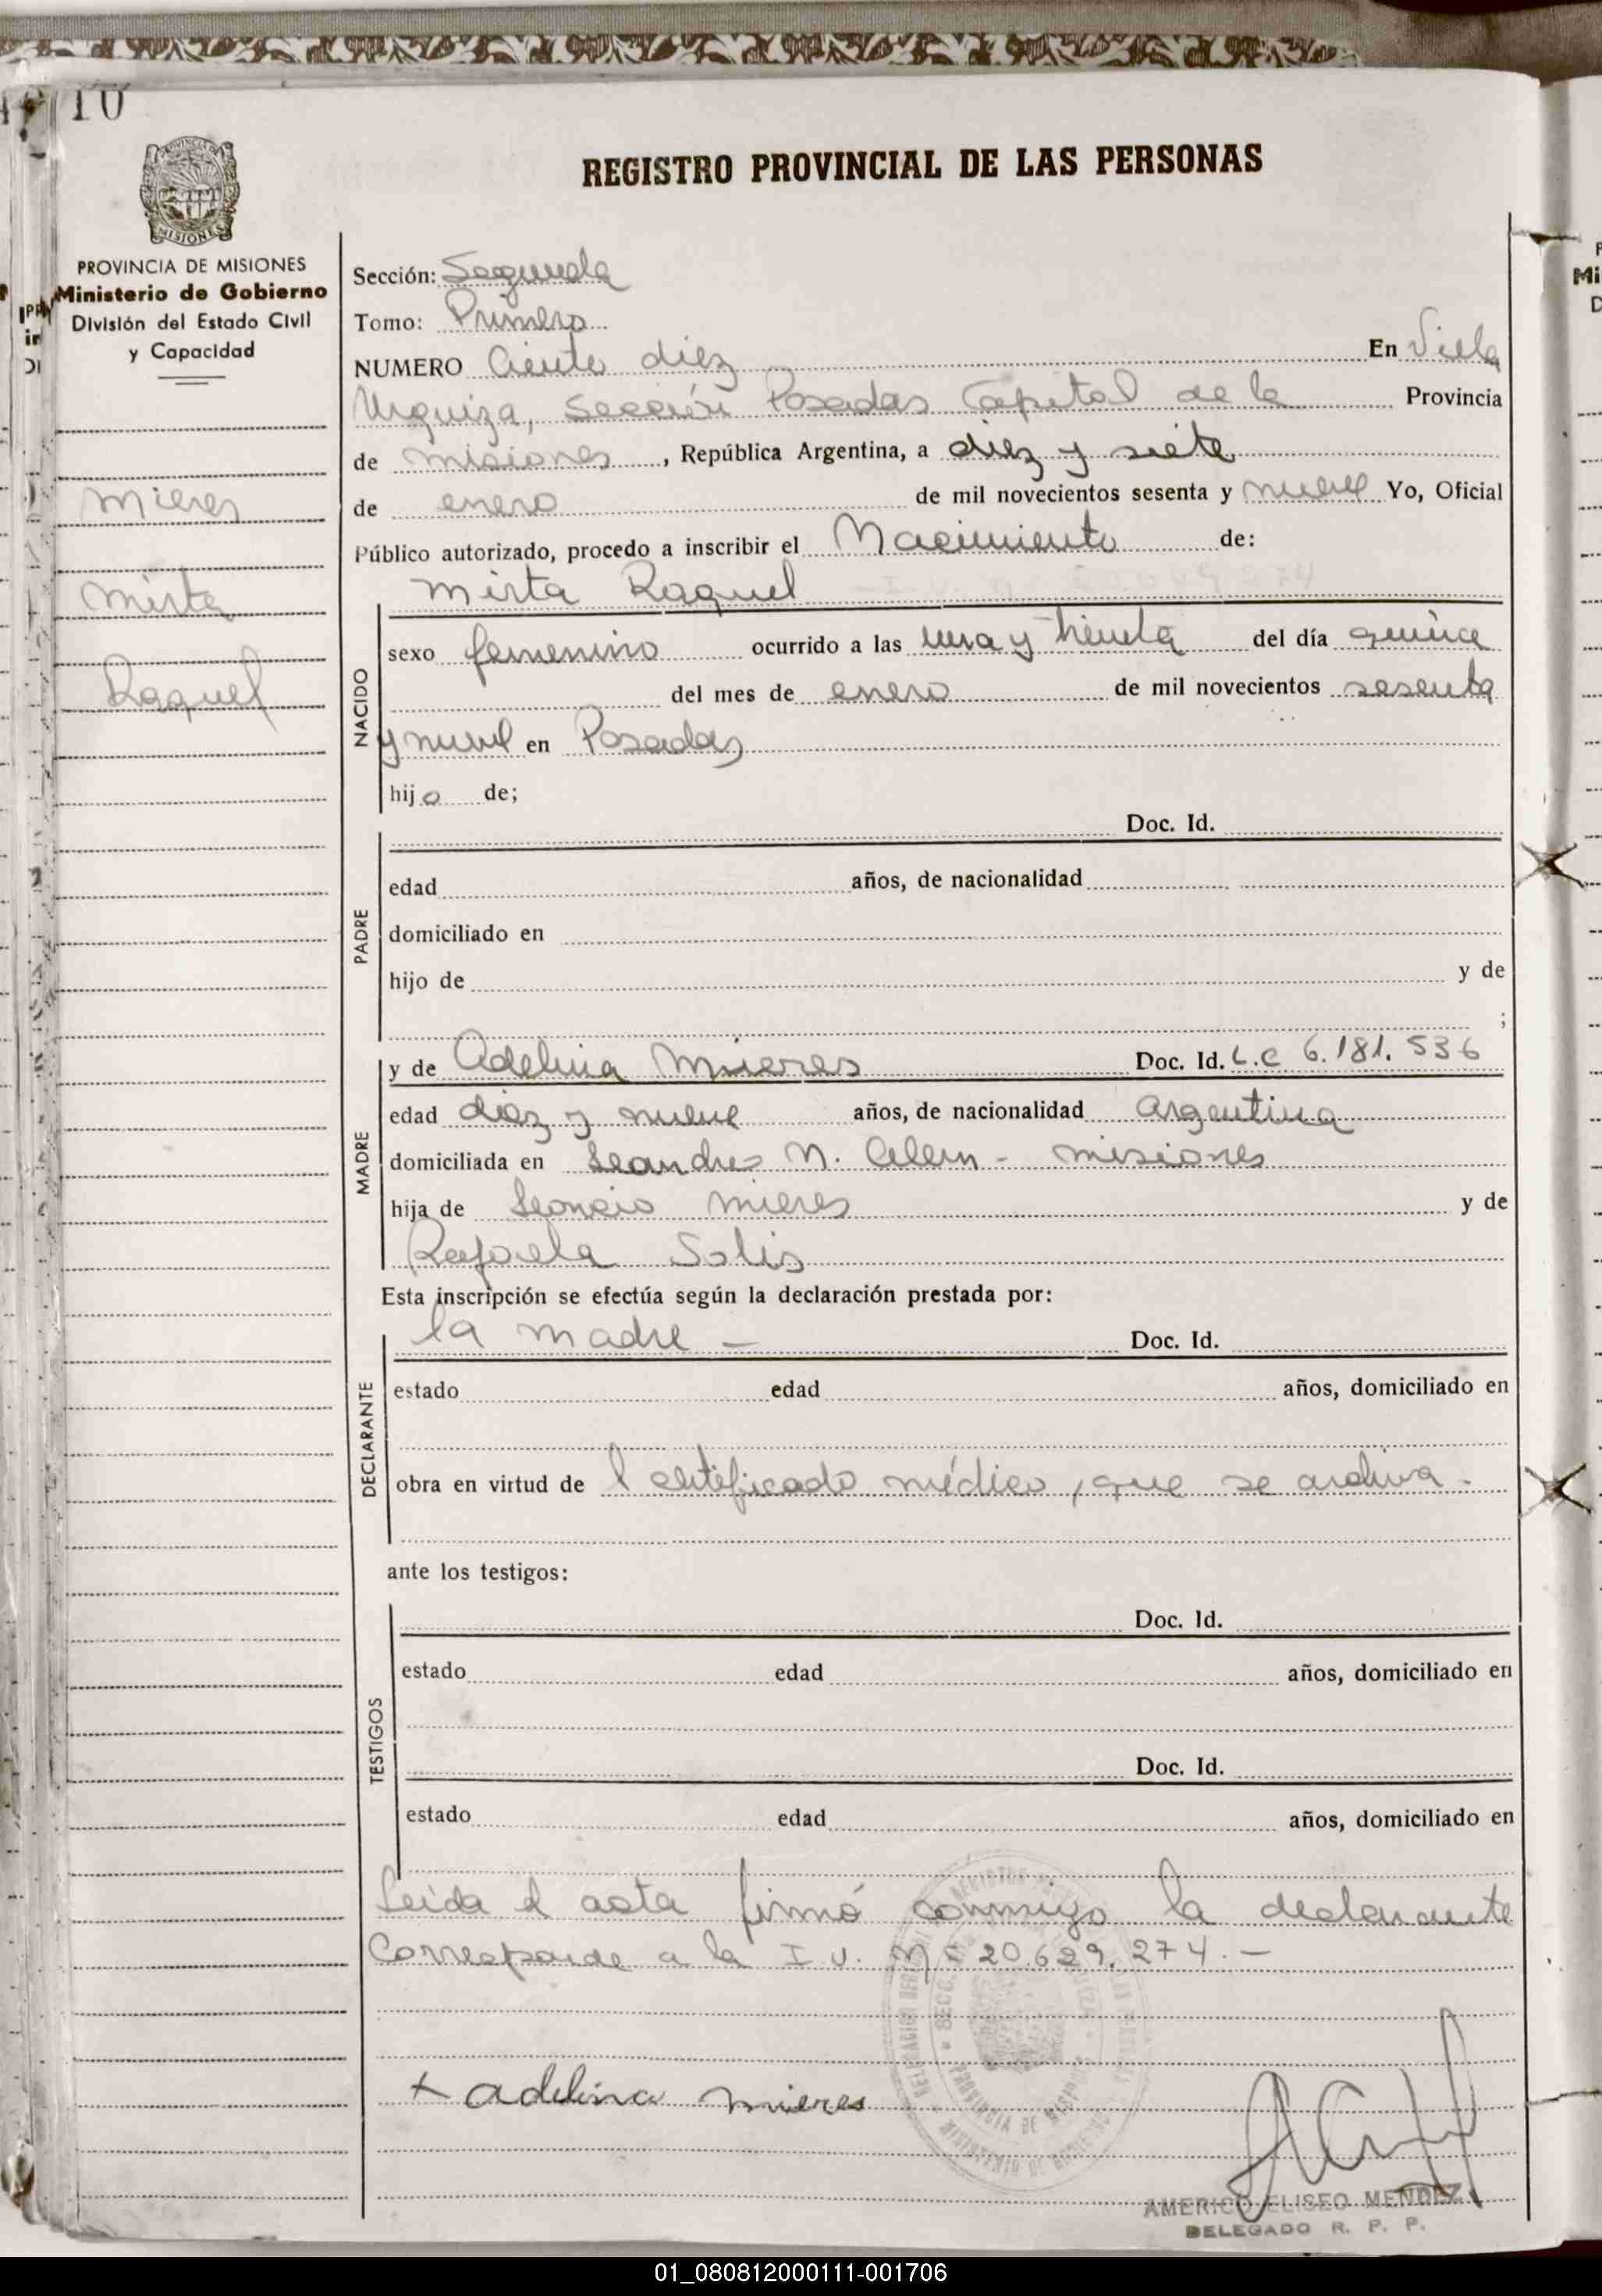 10
REGISTRO PROVINCIAL DE LAS PERSONAS
MISIONES
PROVINCIA DE MISIONES
Ministerio de Gobierno
División del Estado Civil
y Capacidad
Mieres
Mirta
Raquel
Sección: Segunda
Tomo: Primero
NUMERO Ciento diez En Villa
Urquiza, Sección Posadas Capital de la Provincia
de Misiones, República Argentina, a diez y siete
de enero de mil novecientos sesenta y nueve Yo, Oficial
Público autorizado, procedo a inscribir el Nacimiento de:
Mirta Raquel
NACIDO
sexo femenino ocurrido a las una y treinta del día quince
del mes de enero de mil novecientos sesenta
y nueve en Posadas
hijo de;
PADRE
Doc. Id.
edad años, de nacionalidad
domiciliado en
hijo de y de
;
MADRE
y de Adelina Mieres Doc. Id. L.C 6.181.536
edad diez y nueve años, de nacionalidad Argentina
domiciliada en Leandro N. Alem - Misiones
hija de Leoncio Mieres y de
Rafaela Solis
Esta inscripción se efectúa según la declaración prestada por:
DECLARANTE
la madre - Doc. Id.
estado edad años, domiciliado en
obra en virtud de l certificado médico, que se archiva -
ante los testigos:
TESTIGOS
Doc. Id.
estado edad años, domiciliado en
Doc. Id.
estado edad años, domiciliado en
Leida el acta firmó conmigo la declarante
Corresponde a la I. U. Nº 20.629.274. -
+ adelina mieres
AMERICO ELISEO MENDEZ
DELEGADO R. P. P.
01_080812000111-001706